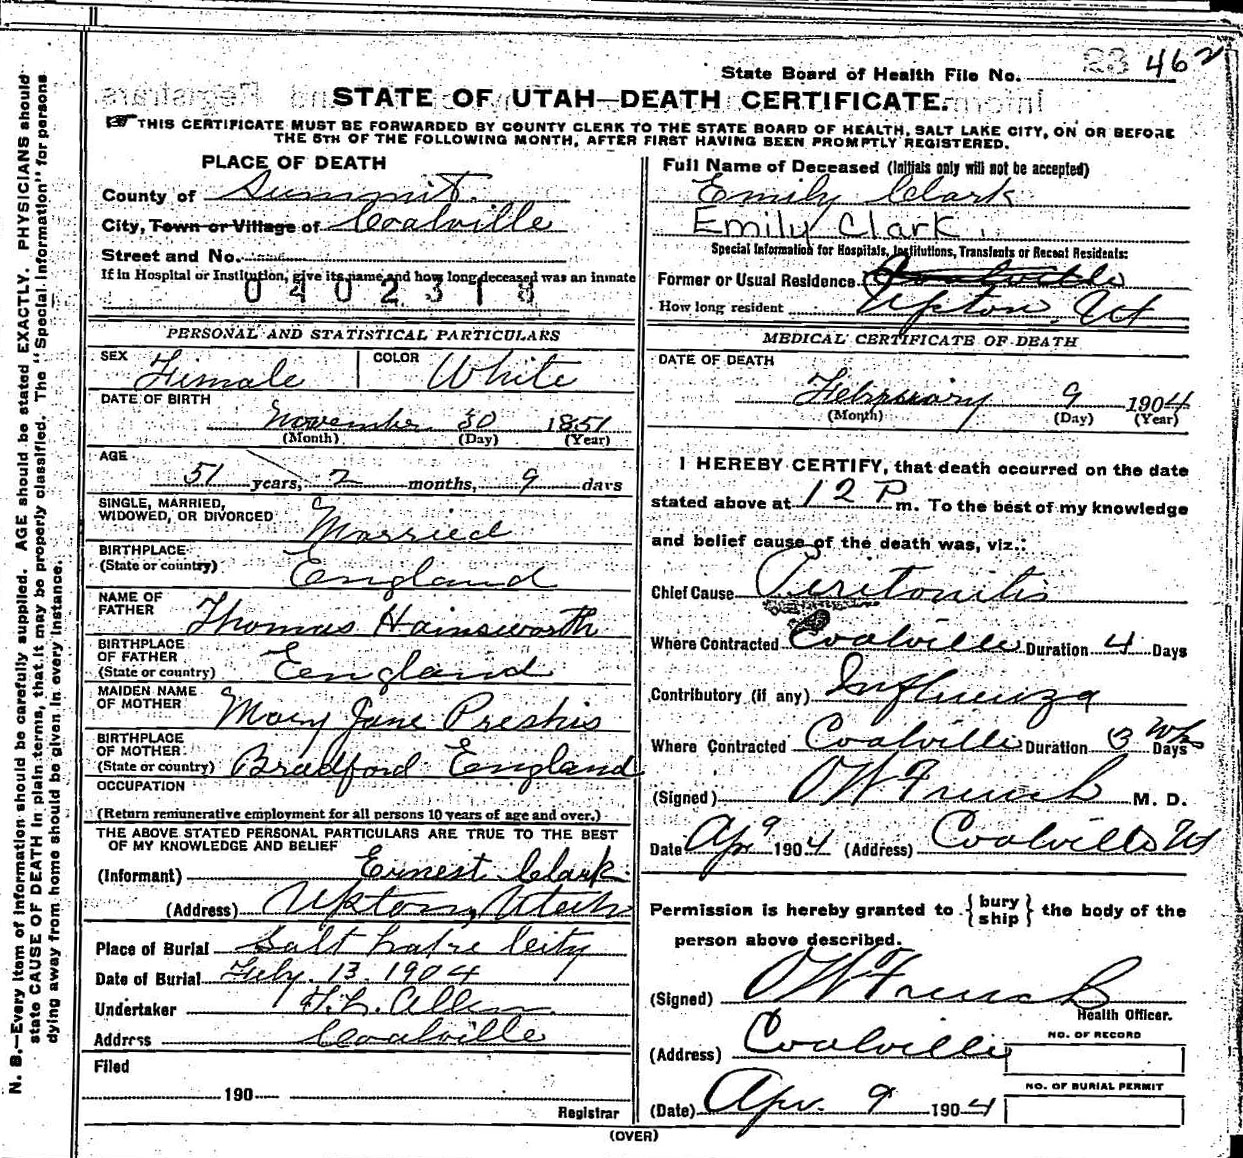 State Board of Health File No. 23 462
STATE OF UTAH—DEATH CERTIFICATE.
THIS CERTIFICATE MUST BE FORWARDED BY COUNTY CLERK TO THE STATE BOARD OF HEALTH, SALT LAKE CITY, ON OR BEFORE
THE 5TH OF THE FOLLOWING MONTH, AFTER FIRST HAVING BEEN PROMPTLY REGISTERED.
PLACE OF DEATH
County of Summit.
City, Town or Village of Coalville
Street and No.
If in Hospital or Institution, give its name and how long deceased was an inmate
0402318
PERSONAL AND STATISTICAL PARTICULARS
SEX Female COLOR White
DATE OF BIRTH
November 30 1851
(Month) (Day) (Year)
AGE
51 years, 2 months, 9 days
SINGLE, MARRIED,
WIDOWED, OR DIVORCED Married
BIRTHPLACE
(State or country) England
NAME OF
FATHER Thomas Hainsworth
BIRTHPLACE
OF FATHER
(State or country) England
MAIDEN NAME
OF MOTHER Mary Jane Preshis
BIRTHPLACE
OF MOTHER
(State or country) Bradford England
OCCUPATION
(Return remunerative employment for all persons 10 years of age and over.)
THE ABOVE STATED PERSONAL PARTICULARS ARE TRUE TO THE BEST
OF MY KNOWLEDGE AND BELIEF
(Informant) Ernest Clark.
(Address) Upton, Utah
Place of Burial Salt Lake City
Date of Burial Feby. 13. 1904
Undertaker T.L. Allen
Address Coalville
Filed
190
Registrar
Full Name of Deceased (Initials only will not be accepted)
Emily Clark
Emily Clark.
Special Information for Hospitals, Institutions, Transients or Recent Residents:
Former or Usual Residence Coalville
How long resident Upton. Ut
MEDICAL CERTIFICATE OF DEATH
DATE OF DEATH
February 9 1904
(Month) (Day) (Year)
I HEREBY CERTIFY, that death occurred on the date
stated above at 12 P m. To the best of my knowledge
and belief cause of the death was, viz.:
Chief Cause Peritonitis
Where Contracted Coalville Duration 4 Days
Contributory (if any) Influenza
Where Contracted Coalville Duration 3 Wks Days
(Signed) O W French M. D.
Date Apr 9 1904 (Address) Coalville Ut
Permission is hereby granted to {bury ship} the body of the
person above described.
(Signed) O W French
Health Officer.
NO. OF RECORD
(Address) Coalville
NO. OF BURIAL PERMIT
(Date) Apr. 9 1904
(OVER)
N. B.—Every item of information should be carefully supplied. AGE should be stated EXACTLY. PHYSICIANS should
state CAUSE OF DEATH in plain terms, that it may be properly classified. The "Special Information" for persons
dying away from home should be given in every instance.